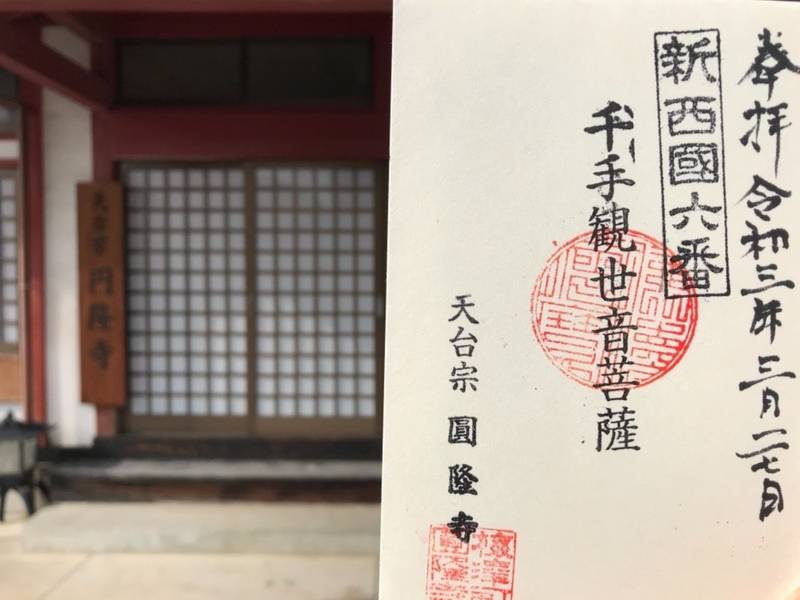 奉拝 令和三年 三月二七日
新西國六番
千手観世音菩薩
天台宗 圓隆寺
天台宗 円隆寺